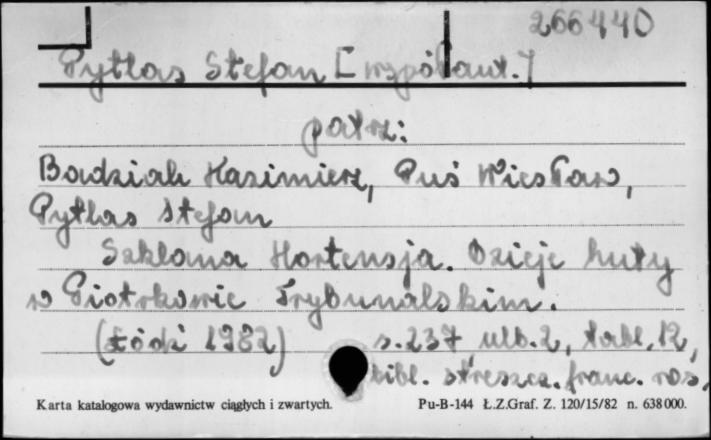 266440
Pytlas Stefan [współaut.]
patrz:
Badziak Kazimierz, Puś Wiesław,
Pytlas Stefan
Szklana Hortensja. Dzieje huty
w Piotrkowie Trybunalskim.
(Łódź 1982) s. 237, ulb. 2, tabl. 12,
bibl. streszcz. franc. ros.
Karta katalogowa wydawnictw ciągłych i zwartych. Pu-B-144 Ł.Z.Graf. Z. 120/15/82 n. 638 000.